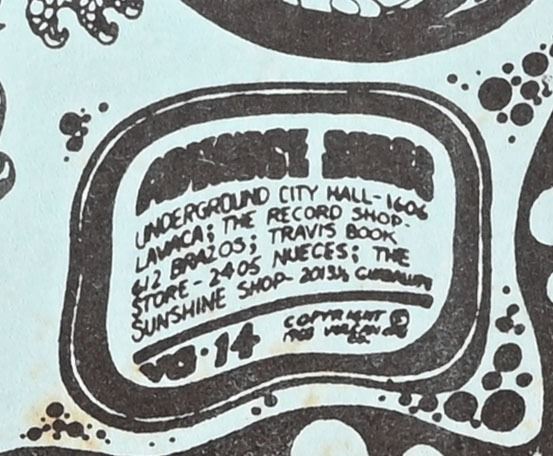 ADVANCE
UNDERGROUND CITY HALL - 1606
LAVACA; THE RECORD SHOP -
612 BRAZOS; TRAVIS BOOK
STORE - 2405 NUECES; THE
SUNSHINE SHOP - 2013½ GUADALUPE
VG·14
COPYRIGHT ©
1968 VULCAN GAS
CO.